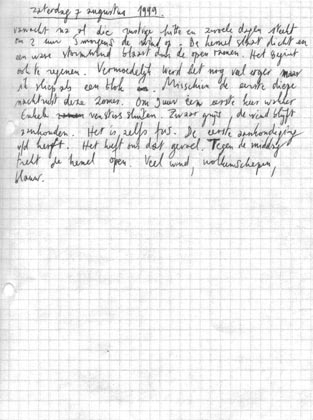 zaterdag 7 augustus 1999.
vannacht na al die zwoele dagen steekt
om 2 uur 's morgens de wind op. De hemel slaat dicht en
een ware stormwind blaast door de open ramen. Het begint
ook te regenen. Vermoedelijk werd het nog veel erger maar
ik sliep als een blok. Misschien de eerste diepe
nachtrust deze zomer. Om 9 uur een eerste keer wakker
Enkele vensters sluiten. Zwaar grijs, de wind blijft
aanhouden. Het is zelfs fris. De eerste aankondiging
v/d herfst. Het heeft ons dat gevoel. Tegen de middag
trekt de hemel open. Veel wind, wolkenschepen,
klaar.